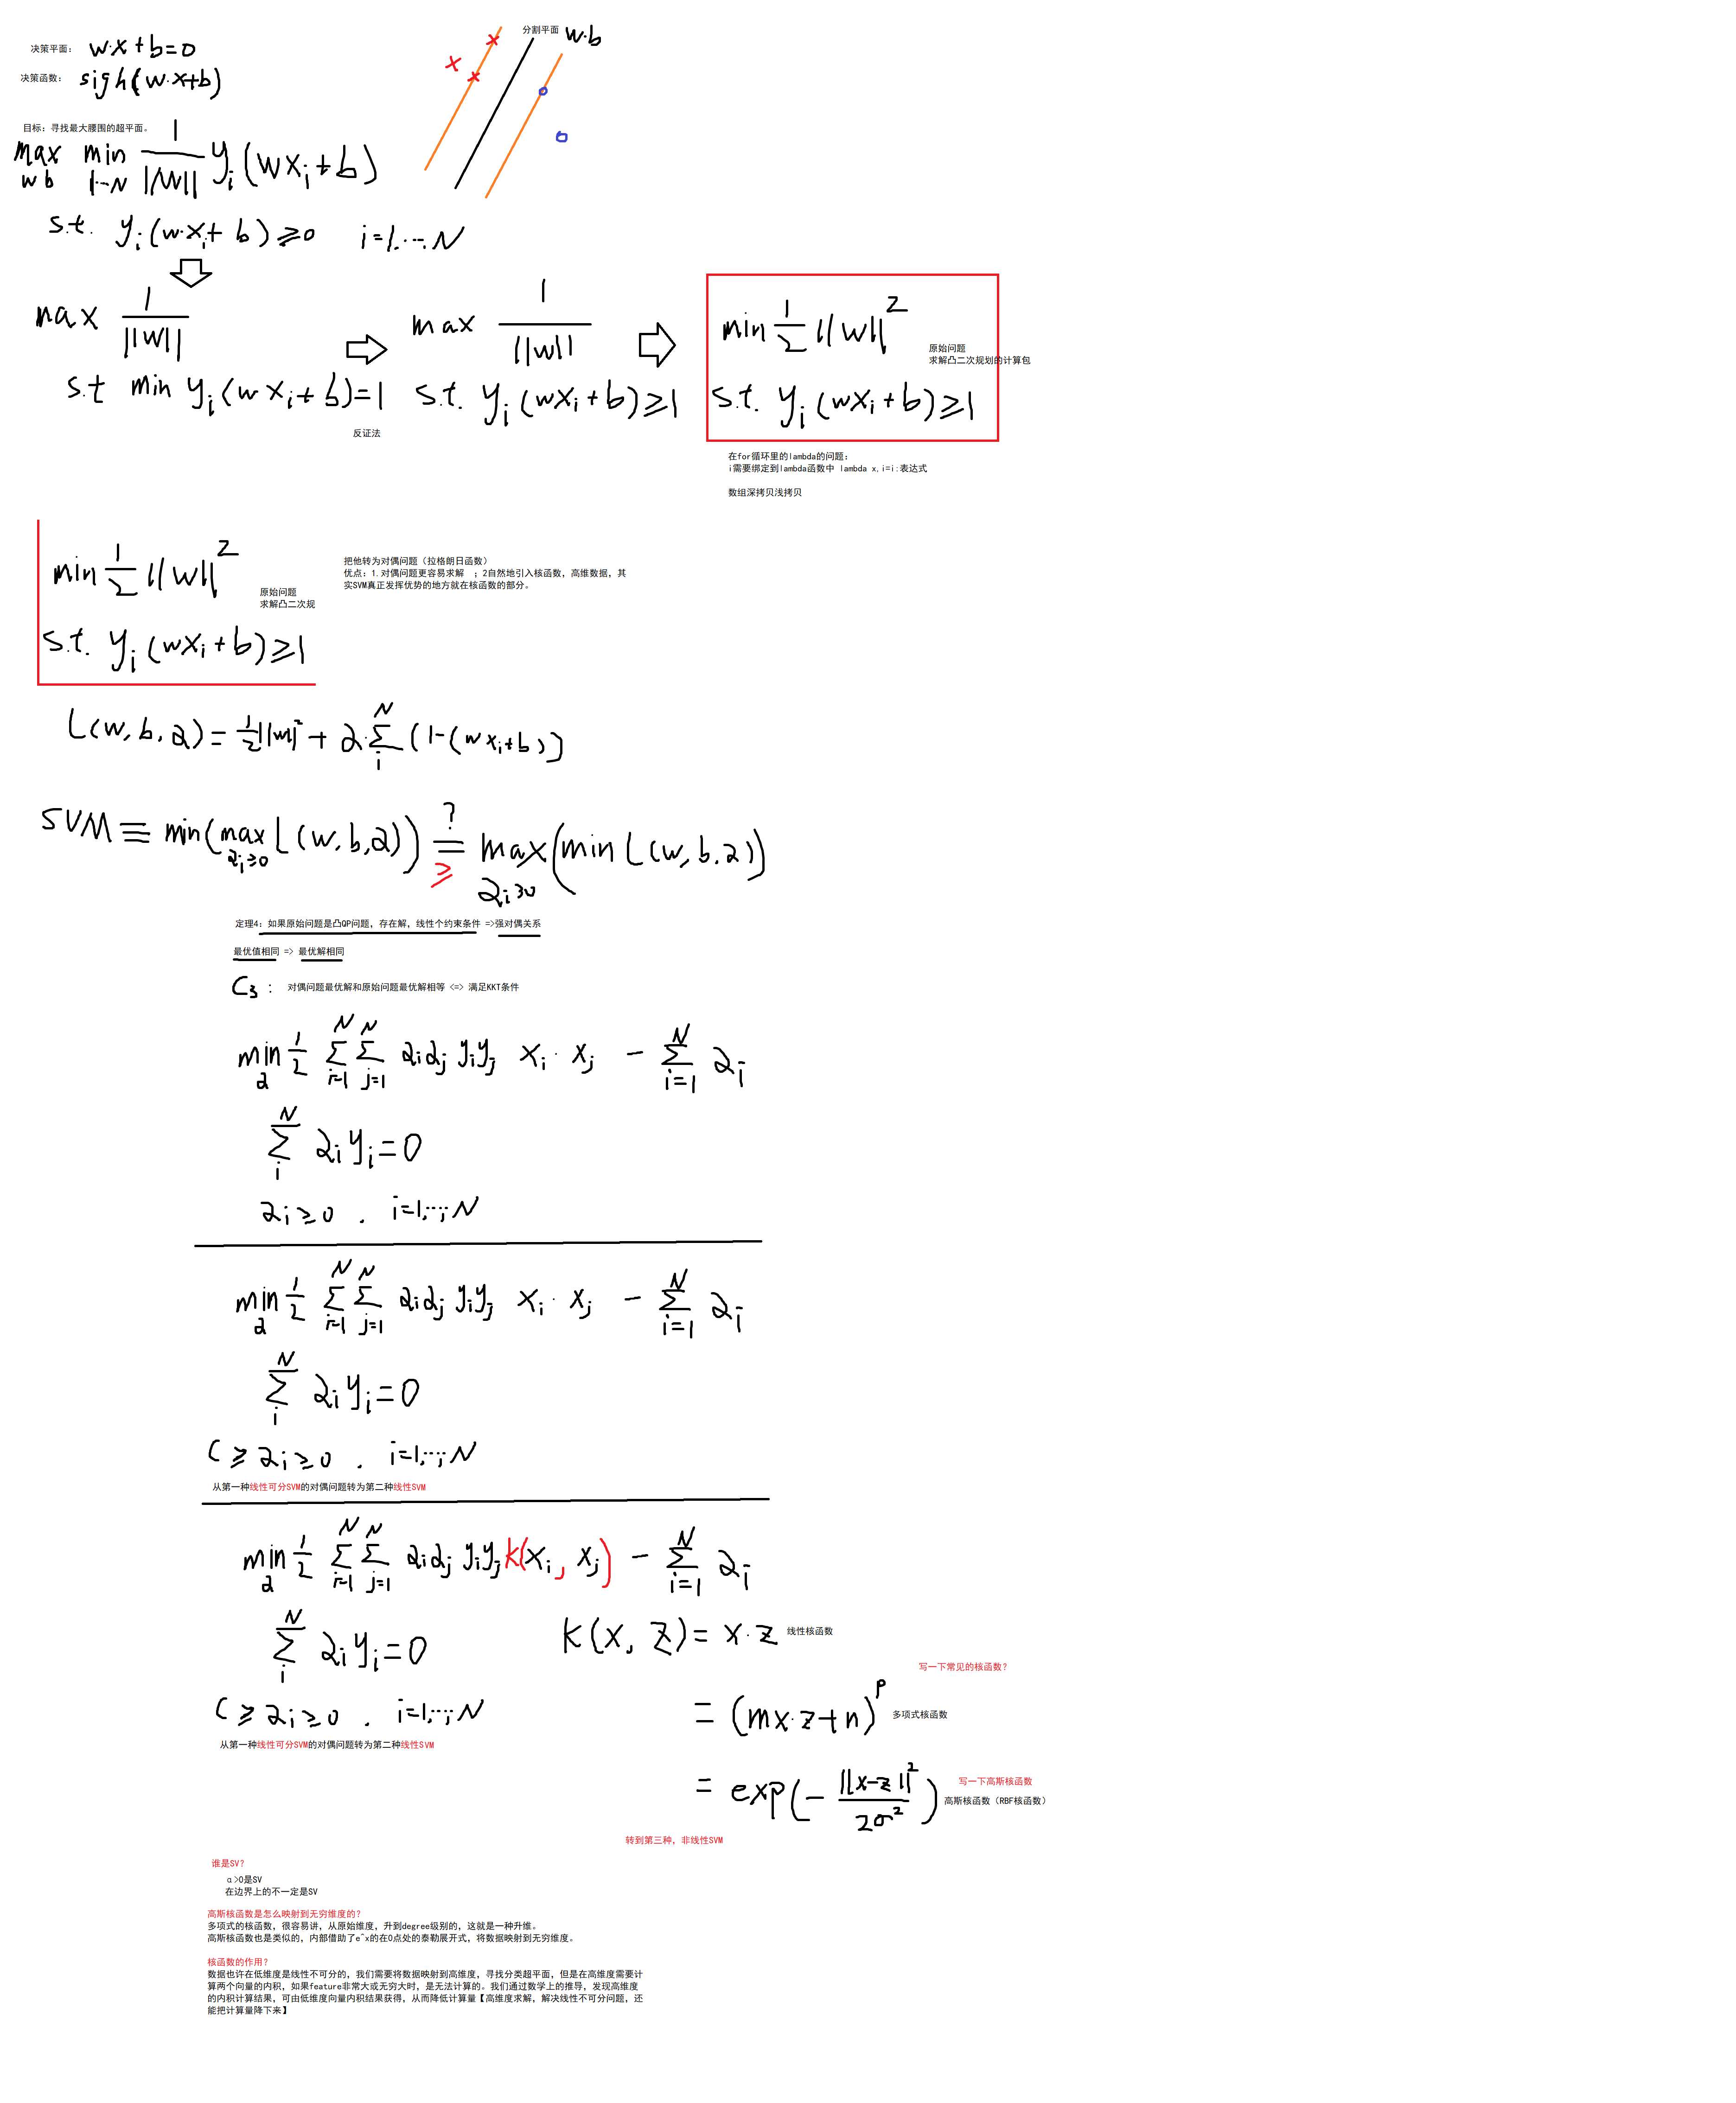 决策平面: w·x+b=0
决策函数: sigh(w·x+b)
分割平面 w·b
目标:寻找最大腰围的超平面。
max min 1/||W|| yi(wxi+b)
w b 1…N
s.t. yi(w·xi+b)≥0 i=1,…,N
max 1/||w||
s.t min yi(wxi+b)=1
反证法
max 1/||w||
s.t. yi(wxi+b)≥1
min 1/2 ||w||²
原始问题
求解凸二次规划的计算包
s.t. yi(wxi+b)≥1
在for循环里的lambda的问题:
i需要绑定到lambda函数中 lambda x,i=i:表达式
数组深拷贝浅拷贝
min 1/2 ||w||²
原始问题
求解凸二次规
s.t. yi(wxi+b)≥1
把他转为对偶问题(拉格朗日函数)
优点:1.对偶问题更容易求解 ;2自然地引入核函数,高维数据,其
实SVM真正发挥优势的地方就在核函数的部分。
L(w,b,α)=1/2||w||²+α·∑ᵢᴺ(1-(wxi+b))
SVM≡min(max L(w,b,α)) = max(min L(w,b,α))
αi≥0 ? ≥ αi≥0
定理4:如果原始问题是凸QP问题,存在解,线性个约束条件 =>强对偶关系
最优值相同 => 最优解相同
C3 : 对偶问题最优解和原始问题最优解相等 <=> 满足KKT条件
min 1/2 ∑∑ αiαj yiyj xi·xj - ∑ αi
α i=1 j=1 i=1 N N N
∑ᵢᴺ αiyi=0
αi≥0 . i=1,…,N
min 1/2 ∑∑ αiαj yiyj xi·xj - ∑ αi
α i=1 j=1 i=1 N N N
∑ᵢᴺ αiyi=0
C≥αi≥0 . i=1,…,N
从第一种线性可分SVM的对偶问题转为第二种线性SVM
min 1/2 ∑∑ αiαj yiyj K(xi, xj) - ∑ αi
α i=1 j=1 i=1 N N N
∑ᵢᴺ αiyi=0
C≥αi≥0 . i=1,…,N
从第一种线性可分SVM的对偶问题转为第二种线性SVM
K(x,z)=x·z 线性核函数
写一下常见的核函数?
=(mx·z+n)^p 多项式核函数
写一下高斯核函数
=exp(-||x-z||²/2σ²) 高斯核函数(RBF核函数)
转到第三种,非线性SVM
谁是SV?
α>0是SV
在边界上的不一定是SV
高斯核函数是怎么映射到无穷维度的?
多项式的核函数,很容易讲,从原始维度,升到degree级别的,这就是一种升维。
高斯核函数也是类似的,内部借助了e^x的在0点处的泰勒展开式,将数据映射到无穷维度。
核函数的作用?
数据也许在低维度是线性不可分的,我们需要将数据映射到高维度,寻找分类超平面,但是在高维度需要计
算两个向量的内积,如果feature非常大或无穷大时,是无法计算的。我们通过数学上的推导,发现高维度
的内积计算结果,可由低维度向量内积结果获得,从而降低计算量【高维度求解,解决线性不可分问题,还
能把计算量降下来】